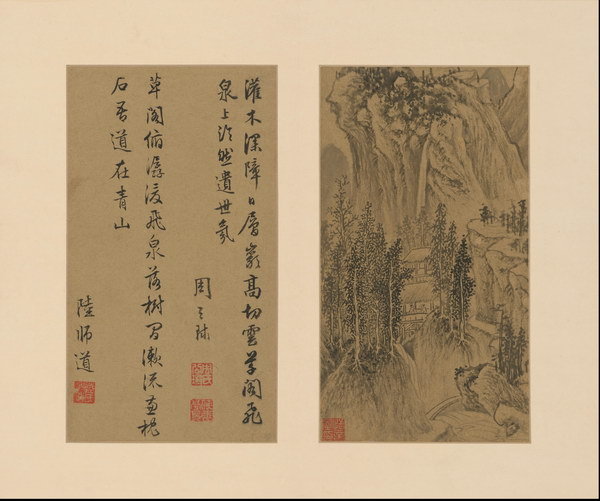 灌木深障日層巖高切雲草閣飛
泉上泠然遺世氛
周天球
草閣俯潺湲飛泉落樹間漱流枕
石吾道在青山
陸師道